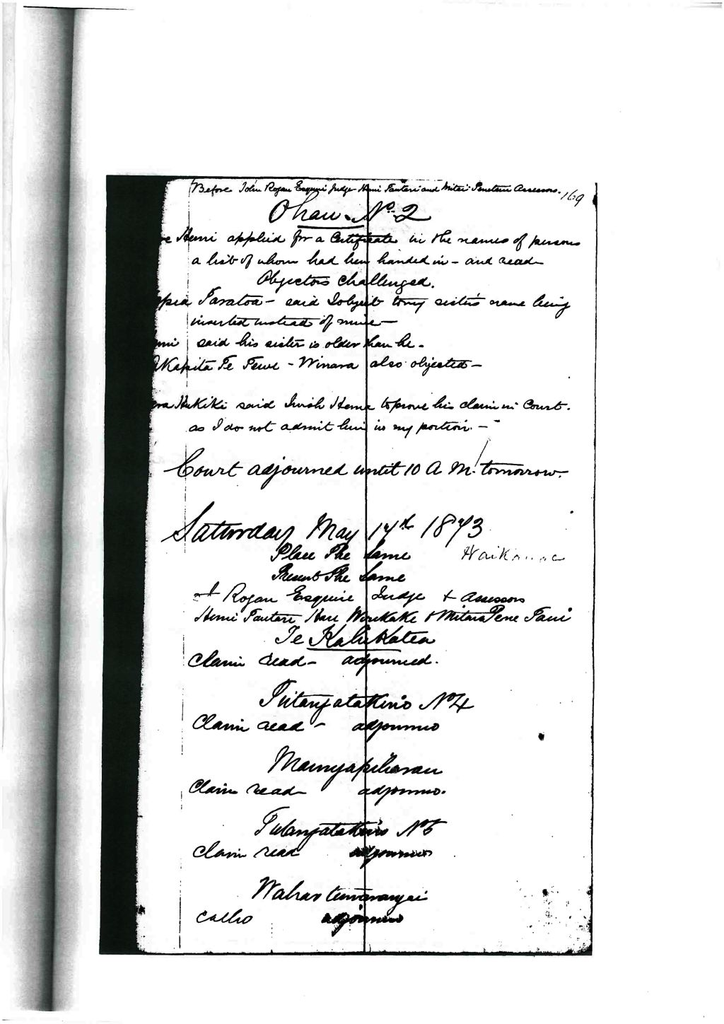 Before John Rogan Esquire Judge Hemi Tautari and Assessors. 169
Ohau No. 2
Hemi applied for a Certificate in the names of persons
a list of whom had been handed in - and read
Objectors challenged.
Paratoa - said I object to my sister's name being
inserted instead of mine -
said his sister is older than he -
Kapita Te Tewe - Winara also objected -
Hukiki said I wish Hemi to prove his claim in Court.
as I do not admit him in my portion -
Court adjourned until 10 A.M. tomorrow.
Satturday May 17th 1873
Place The Same Waikanae
Present The Same
J Rogan Esquire Judge & Assessors
Hemi Tautari Hari Wirikake &
Te Kahikatea
Claim read - adjourned.
No 4
Claim read - adjourned
Claim read adjourned.
No 5
Claim read adjourned
called adjourned